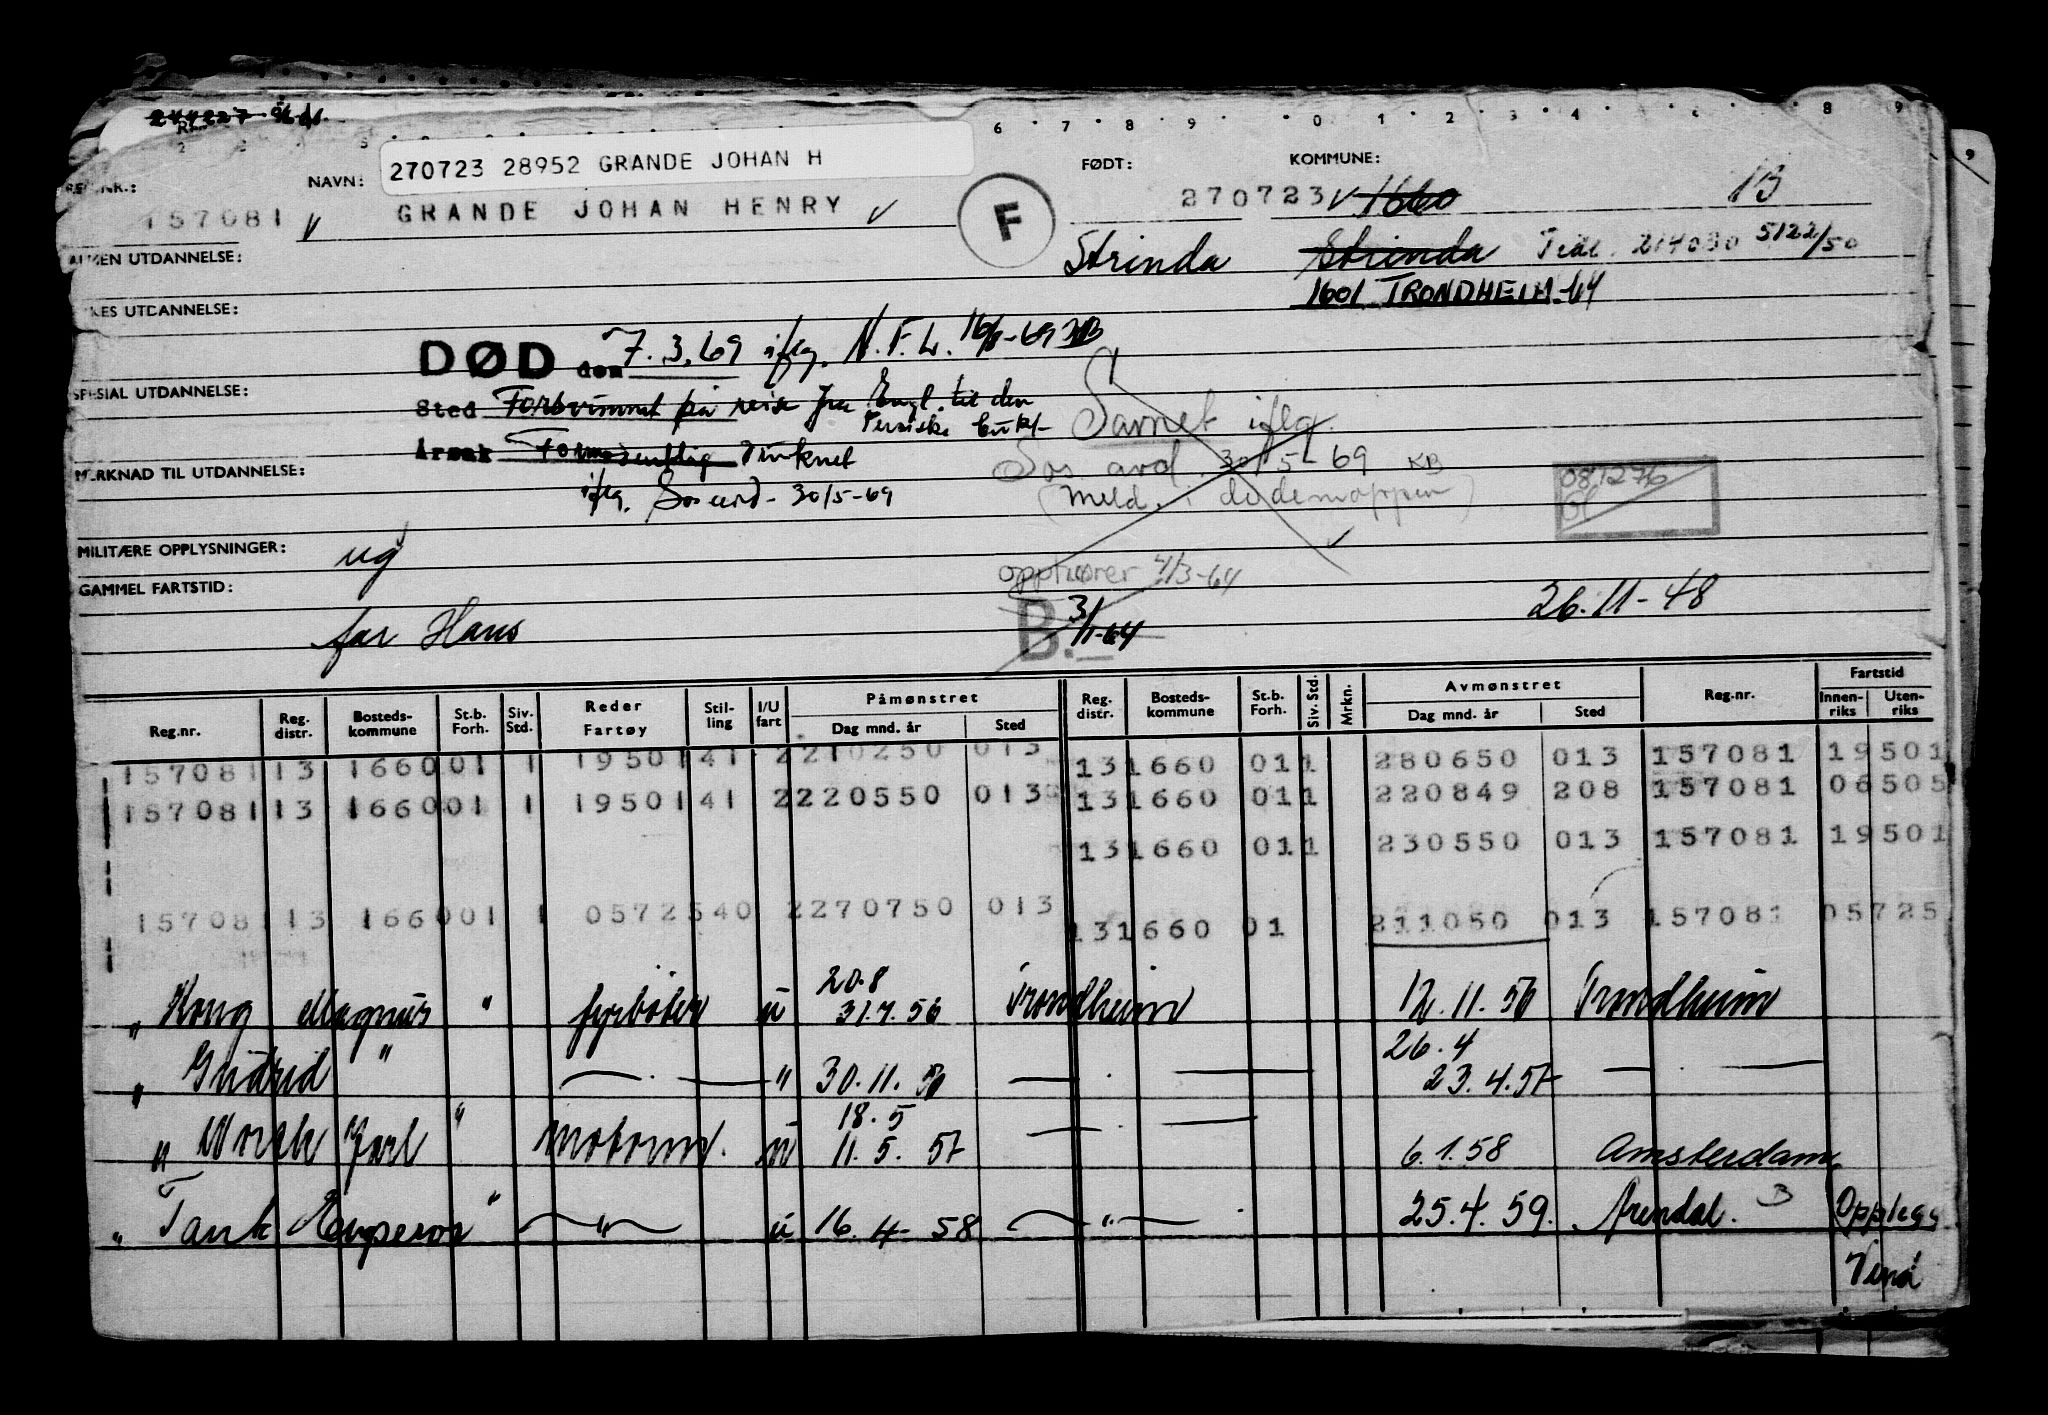 6 · 7 · 8 · 9 · 0 · 1 · 2 · 3 · 4 8 9
9
270723 28952 GRANDE JOHAN H
NAVN: FØDT: KOMMUNE:
157081 GRANDE JOHAN HENRY F 270723 1660 13
UTDANNELSE: Strinda Strinda 214030 5122/50
1601 TRONDHEIM-64
UTDANNELSE:
DØD den 7.3.69 iflg. N.F.L.
SPESIAL UTDANNELSE:
Sted Forsvunnet på reise fra Engl. til den
Persiske bukt
Savnet iflg.
Årsak Formodentlig druknet
Sos avd. 30/5-69 KB
MERKNAD TIL UTDANNELSE:
081276
iflg. Sos avd - 30/5-69
(Meld. i dødemappen)
MILITÆRE OPPLYSNINGER: ug
opphører 4/3-64
GAMMEL FARTSTID:
B. 3/1-64
26.11-48
far Hans
Reg.nr. Reg. distr. Bosteds-kommune St.b. Forh. Siv. Std. Reder Fartøy Stil-ling I/U fart Påmønstret Dag mnd. år Sted Reg. distr. Bosteds-kommune St.b. Forh. Siv. Std. Mrkn. Avmønstret Dag mnd. år Sted Reg.nr. Fartstid Innen-riks Uten-riks
157081 13 1660 01 1 19501 41 2 210250 013 13 1660 01 1 280650 013 157081 19501
157081 13 1660 01 1 19501 41 2 220550 013 13 1660 01 1 220849 208 157081 06505
13 1660 01 1 230550 013 157081 19501
157081 13 1660 01 1 05725 40 2 270750 013 13 1660 01 211050 013 157081 05725
20.8
" Kong Magnus " fyrbøter u 31.7.56 Trondheim 12.11.56 Trondheim
26.4
" Gudrid " — · — " 30.11.56 — · — 23.4.57 — · —
18.5
" Norsk Jarl " motorm. u 11.5.57 — · — 6.1.58 Amsterdam
" Tank Emperor " — " — u 16.4.58 — " — 25.4.59. Arendal. B Opplegg